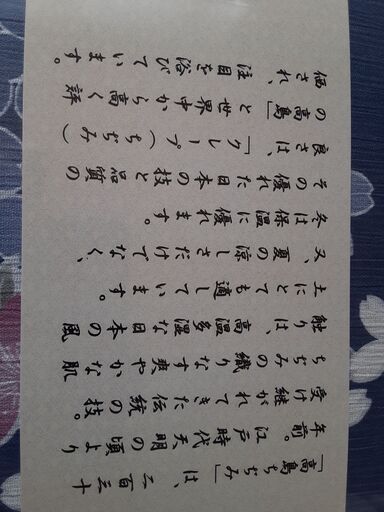 「高島ちぢみ」は、二百三十
年前。江戸時代天明の頃より
受け継がれてきた伝統の技。
ちぢみの織りなす爽やかな肌
触りは、高温多湿な日本の風
土にとても適しています。
又、夏の涼しさだけでなく、
冬は保温に優れます。
その優れた日本の技と品質の
良さは、「クレープ(ちぢみ)
の高島」と世界中から高く評
価され、注目を浴びています。